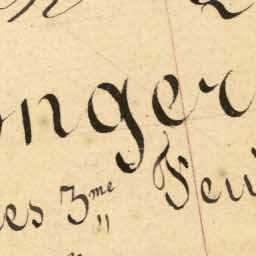 nger
es 3me Feu